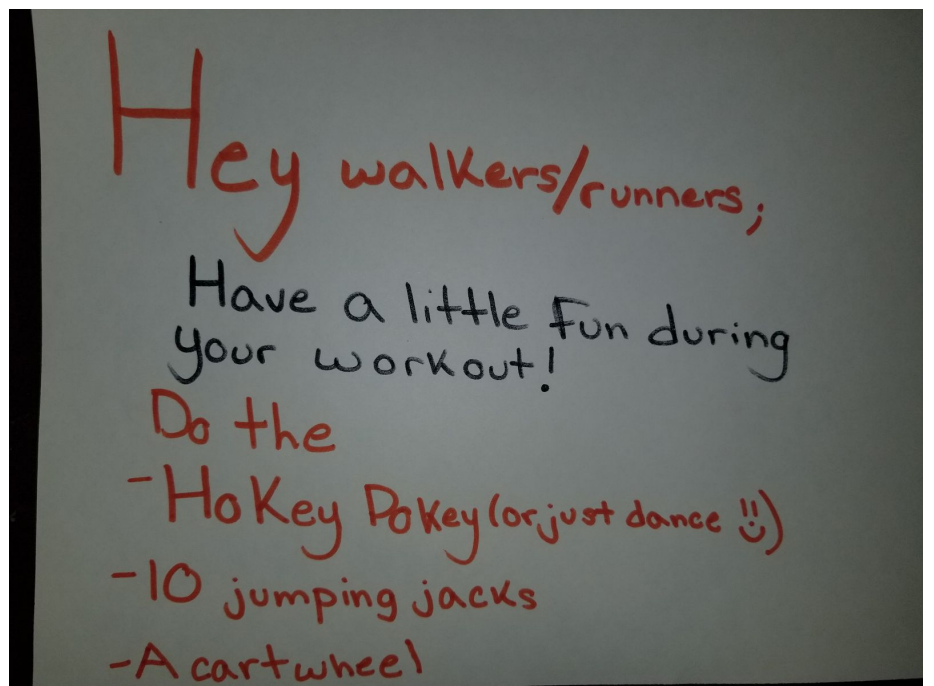 Hey walkers/runners,
Have a little fun during
your workout!
Do the
- Hokey Pokey (or just dance !!)
- 10 jumping jacks
- A cartwheel